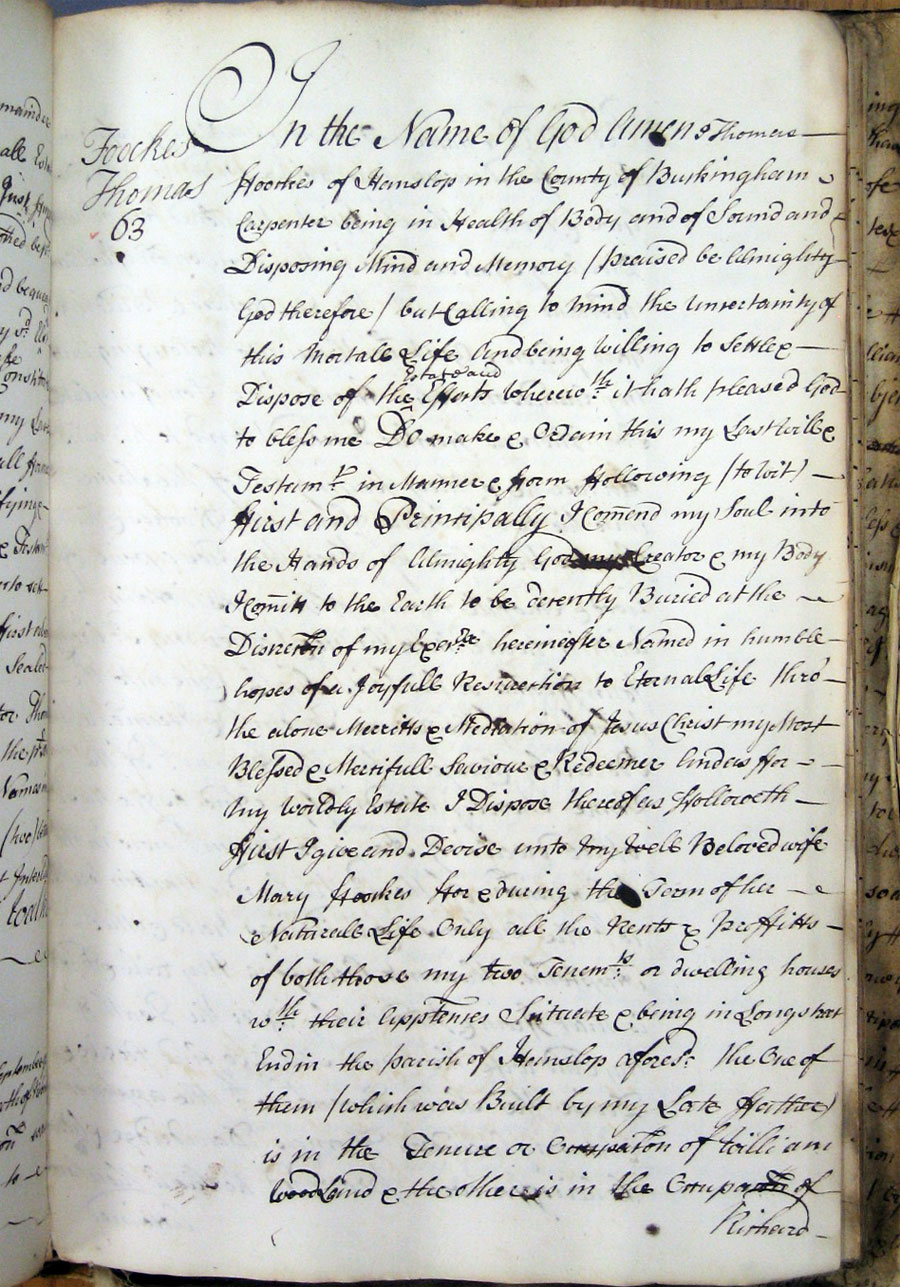 Foockes
Thomas
63
In the Name of God Amen Thomas
ffoockes of Hanslop in the County of Buckingham
Carpenter being in Health of Body and of Sound and
Disposing Mind and Memory (praised be Almighty
God therefore) but Calling to mind the uncertainty of
this Mortall Life And being Willing to Settle &
Estate and
Dispose of the Effects Wherewth it hath pleased God
to bless me Do make & Ordain this my Last Will &
Testamt in Manner & form ffollowing (to Wit)
ffirst and Principally I Comend my Soul into
the Hands of Almighty God my Creator & my Body
I Comitt to the Earth to be decently Buried at the
Discretn of my Exectr hereinafter Named in humble
hopes of a Joyfull Resurrection to Eternal Life thro
the alone Merritts & Mediation of Jesus Christ my Most
Blessed & Mercifull Saviour & Redeemer And as ffor
my Worldly Estate I Dispose thereof as ffolloweth
ffirst I give and Devise unto my Well Beloved wife
Mary ffoockes ffor & during the Term of her
Naturall Life Only all the Rents & Proffitts
of both those my two Tenemts or dwelling houses
wth their Apptences Situate & being in Longstreet
End in the parish of Hanslop aforesd the One of
them (which was Built by my Late ffather)
is in the Tenure or Occupation of William
Woodland & the other is in the Occupation of
Richard